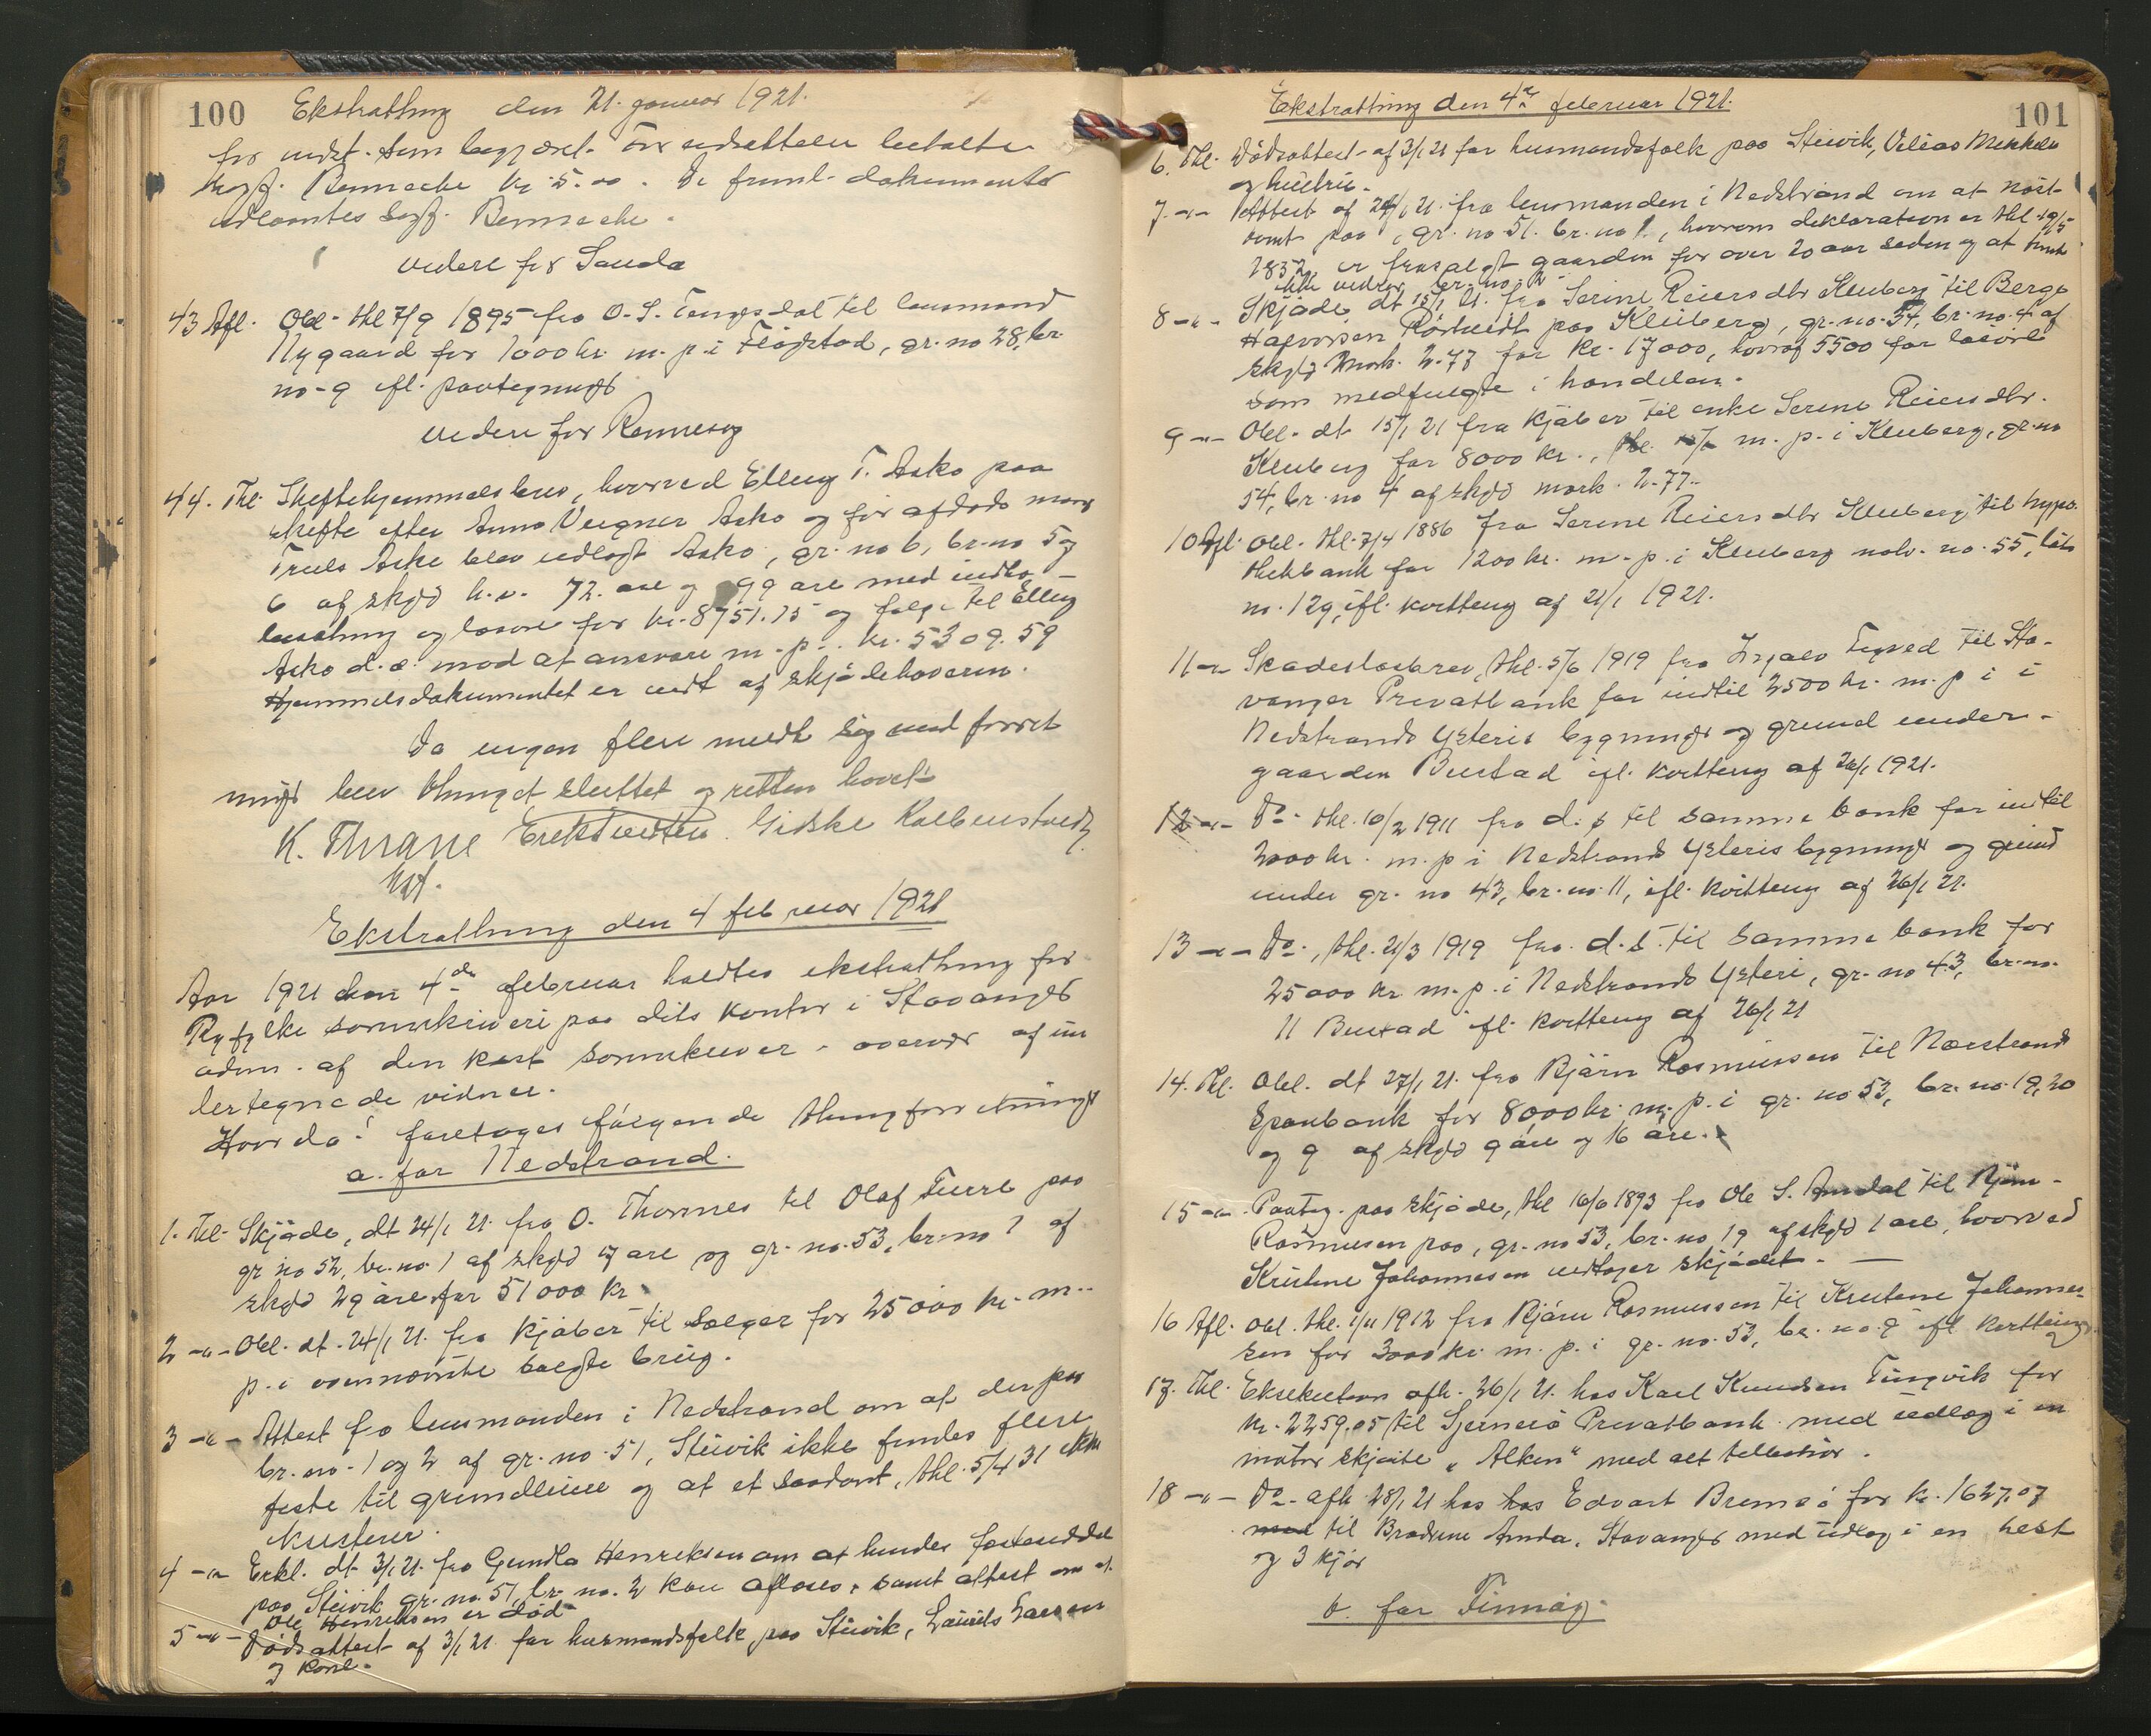 100 Ekstrating den 21. januar 1921.
for uidst. som begjæret. For udsættelse betalte
sagf. Benneche kr. 5.00. De freml. dokumenter
udleveredes sagf. Benneche.
videre for Sauda
43 Afl. Obl. thl 7/9 1895 fra O. S. Tengsdal til lensmand
Nygaard for 1000 kr. m. p. i Fløgstad, gr. no 28, br.
no. 9 ifl. paategnings
videre for Rennesøy
44. Thl. Skiftehjemmelsbrev, hvorved Elling T. Aske paa
skifte efter Anna Aske og før afdøde mand
Truls Aske blev udlagt Aske, gr. no 6, br. no 5 og
6 af skyld h.v. 72 øre og 99 øre med
besætning og løsøre for kr. 8751.75 og følge til Elling
Aske d. æ. mod at ansvare m. p. kr. 5309.59
Hjemmelsdokumentet er udst af skjødehaveren.
Da ingen flere meldte sig med forret
nings blev thinget sluttet og retten hævet
K. Thrane Erik Tvedten Gidske Kolbenstvedt
kst.
Ekstrathing den 4 februar 1921
Aar 1921 den 4de februar holdtes ekstrathing for
Ryfylke sorenskriveri paa dets kontor i Stavanger
adm. af den kost sorenskriver i overvær af un
dertegnede vidner.
Hvorda: foretages følgende thingforretninger
a. for Nedstrand.
1. Thl. Skjøde, dt 24/1 21. fra O. Thormes til Olaf Tuere paa
gr no 52, br. no. 1 af skyld 7 øre og gr. no. 53, br. no 7 af
skyld 29 øre for 51000 kr
2 -"- Obl. dt. 24/1 21. fra kjøber til sælger for 25000 kr. m.
p. i ovennævnte solgte brug.
3 -"- Attest fra lensmanden i Nedstrand om at der paa
br. no. 1 og 2 af gr. no. 51, Steivik ikke findes flere
feste til grundleiere og at et saadant, thl. 5/4 31 ikke
eksisterer.
4 -"- Erkl. dt. 3/1 21. fra Gundla Henriksen om at hendes festeseddel
paa Steivik gr. no. 51, br. no. 2 kan afløses, samt attest om at
Ole Henriksen er død
5 -"- Dødsattest af 3/1 21. for husmandsfolk paa Steivik, Laurits Larsen
og kone.
Ekstrathing den 4de februar 1921. 101
6. Thl. Dødsattest af 3/1 21 for husmandsfolk paa Steivik, Vilias Mikkelsen
og hustru.
7 -"- Attest af 24/1 21. fra lensmanden i Nedstrand om at nøst
tomt paa gr. no. 51. br. no 1, hvorom deklaration er thl. 19/5
1852, er frasolgt gaarden for over 20 aar siden og at
ikke vedrør br. no 2
8 -"- Skjøde dt 15/1 21. fra Serine Reiersdtr Kleiberg til Berge
Halvorsen Rørtveidt paa Kleiberg, gr. no. 54, br. no. 4 af
skyld Mark 2.77 for kr. 17000, hvoraf 5500 for løsøre
som medfulgte i handelen.
9 -"- Obl. dt 15/1 21 fra kjøber til enke Serine Reiersdtr.
Kleiberg for 8000 kr., m. p. i Kleiberg, gr. no
54, br. no 4 af skyld mark. 2.77.
10 Afl. Obl. thl. 7/4 1886 fra Serine Reiersdtr Kleiberg til hypo
thekbank for 1200 kr. m. p. i Kleiberg matr. no. 55, løb
no. 129, ifl. kvittering af 21/1 1921.
11 -"- Skadesløsbrev, thl. 5/6 1919 fra Ingalv Tysved til Sta-
vanger Privatbank for indtil 2500 kr. m. p i i
Nedstrands Ysteris bygninger og grund under-
gaarden Bustad ifl. kvittering af 26/1 1921.
12 -"- Do. thl. 10/2 1911 fra d. s til samme bank for indtil
2000 kr. m. p i Nedstrands Ysteris bygninger og grund
under gr. no 43, br. no. 11, ifl. kvittering af 26/1 21.
13 -"- Do., thl. 21/3 1919 fra d. s. til samme bank for
25000 kr m. p. i Nedstrands Ysteri, gr. no 43, br. no.
11 Bustad ifl. kvittering af 26/1 21
14. Thl. Obl. dt 27/1 21. fra Bjørn Rasmussen til Nærstrands
Sparebank for 8000 kr. m. p. i gr. no 53, br. no. 19, 20
og 9 af skyld 9 øre og 16 øre.
15 -"- Paateg. paa skjøde, thl 16/6 1893 fra Ole S. Amdal til Bjørn
Rasmusen paa, gr. no 53, br. no 19 af skyld 1 øre, hvorved
Kristine Johannesen vedtager skjødet.
16 Afl. Obl. thl. 1/11 1912 fra Bjørn Rasmussen til Kristine Johannes-
sen for 3000 kr. m. p. i gr. no. 53, br. no. 9 ifl kvittering.
17. Thl. Eksekution afh. 26/1 21. hos Karl Knudsen Tingvik for
kr. 2259.05 til Sjernerø Privatbank med udlæg i en
motorskjøite "Alken" med alt tilbehør.
18 -"- Do. afh 28/1 21 hos hos Edvart Bremsø for kr. 1627.07
med til Brødrene Amda. Stavanger med udlæg i en hest
og 3 kjør
b. for Finnøy.